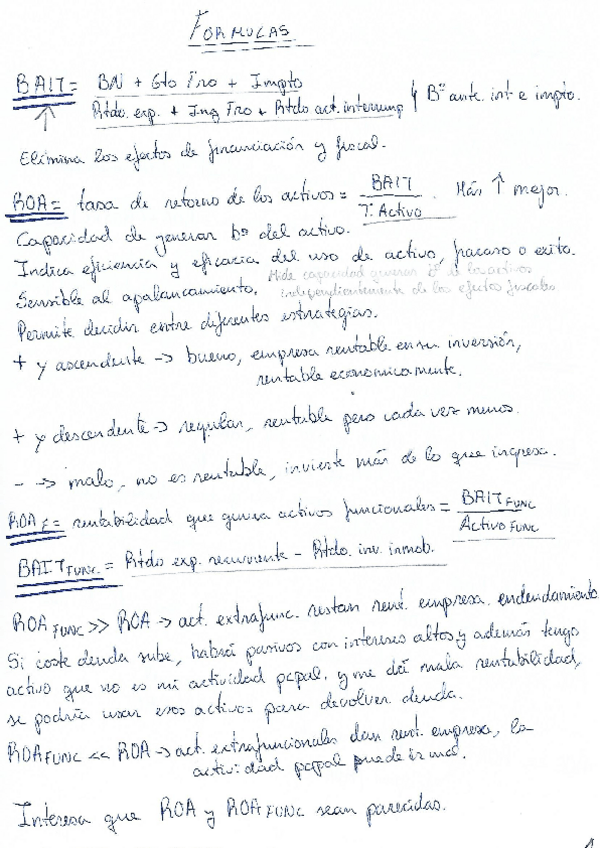 FORMULAS
BAIT = BN + Gto Fro + Impto
Rtdo. exp. + Ing Fro + Rtdo act. interrump } Bº ante. int e impto.
Elimina los efectos de financiación y fiscal.
ROA = tasa de retorno de los activos = BAIT / T. Activo. Más ↑ mejor.
Capacidad de generar bº del activo.
Indica eficiencia y eficacia del uso de activo, fracaso o exito.
Sensible al apalancamiento. Mide capacidad generar bº de los activos
independientemente de los efectos fiscales
Permite decidir entre diferentes estrategias.
+ y ascendente -> bueno, empresa rentable en su inversión,
rentable economicamente.
+ y descendente -> regular, rentable pero cada vez menos.
- -> malo, no es rentable, invierte más de lo que ingresa.
ROA F = rentabilidad que genera activos funcionales = BAIT FUNC / Activo FUNC
BAIT FUNC = Rtdo exp. recurrente - Rtdo. inv. inmob.
ROA FUNC >> ROA -> act. extrafunc. restan rent. empresa. endeudamiento
Si coste deuda sube, habrá pasivos con intereses altos, y además tengo
activo que no es mi actividad ppal. y me dá mala rentabilidad,
se podría usar esos activos para devolver deuda.
ROA FUNC << ROA -> act. extrafuncionales dan rent. empresa, la
actividad ppal puede ir mal.
Interesa que ROA y ROA FUNC sean parecidas.